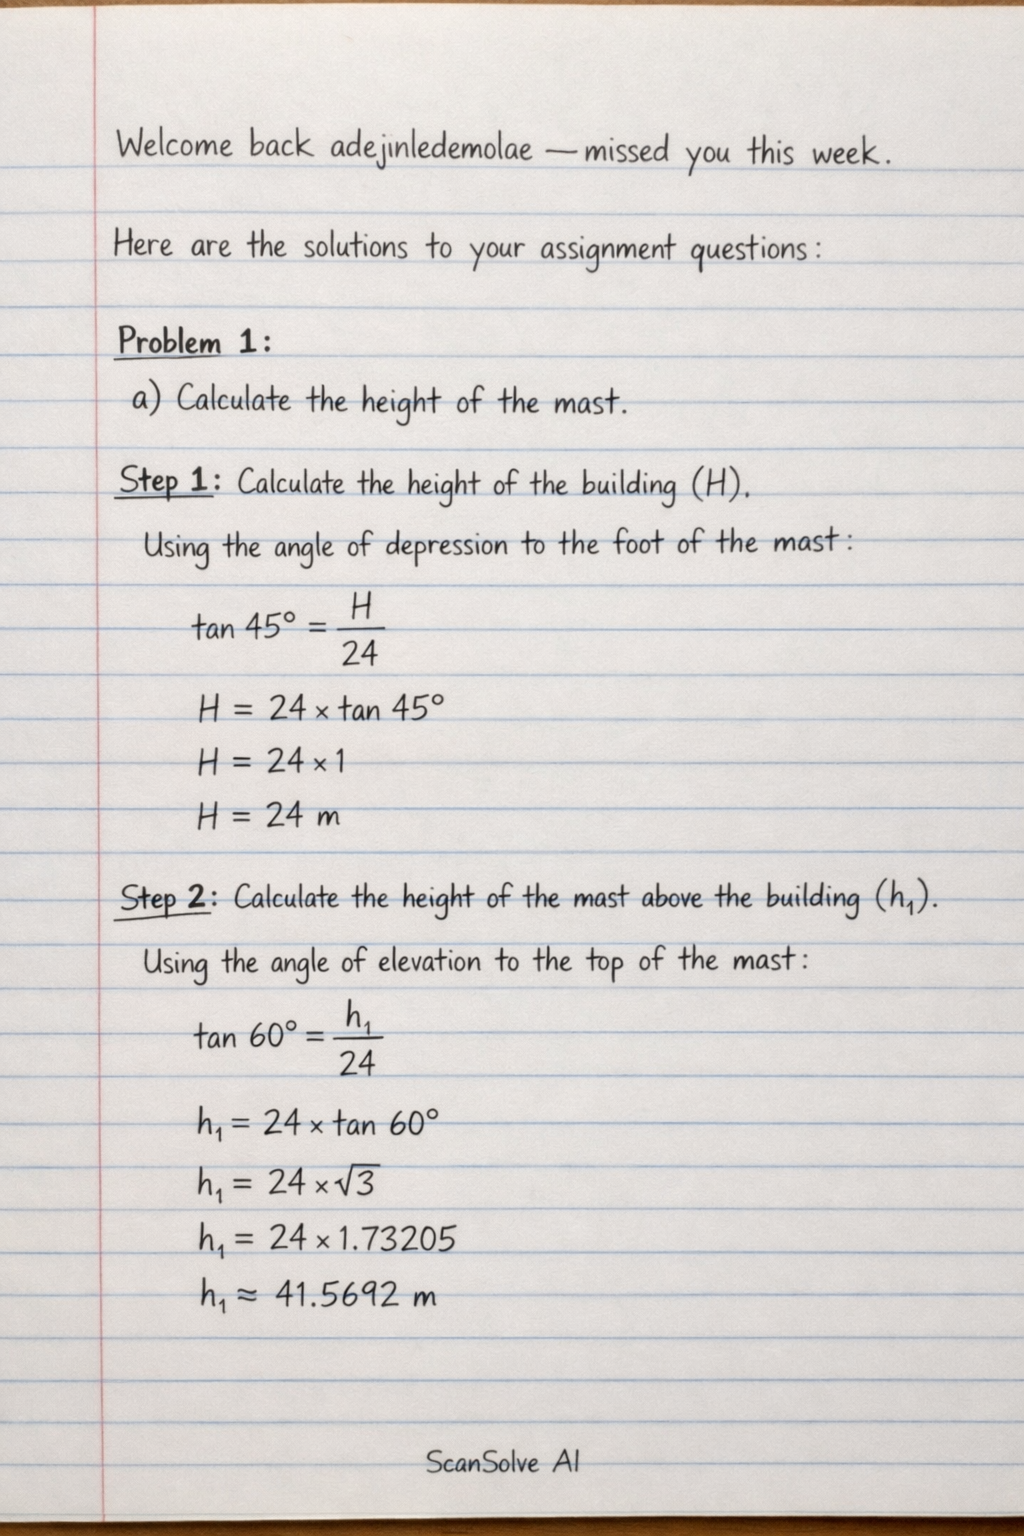 Welcome back adejinledemolae — missed you this week.
Here are the solutions to your assignment questions:
Problem 1:
a) Calculate the height of the mast.
Step 1: Calculate the height of the building (H).
Using the angle of depression to the foot of the mast:
tan 45° = H/24
H = 24 × tan 45°
H = 24 × 1
H = 24 m
Step 2: Calculate the height of the mast above the building (h₁).
Using the angle of elevation to the top of the mast:
tan 60° = h₁/24
h₁ = 24 × tan 60°
h₁ = 24 × √3
h₁ = 24 × 1.73205
h₁ ≈ 41.5692 m
ScanSolve AI